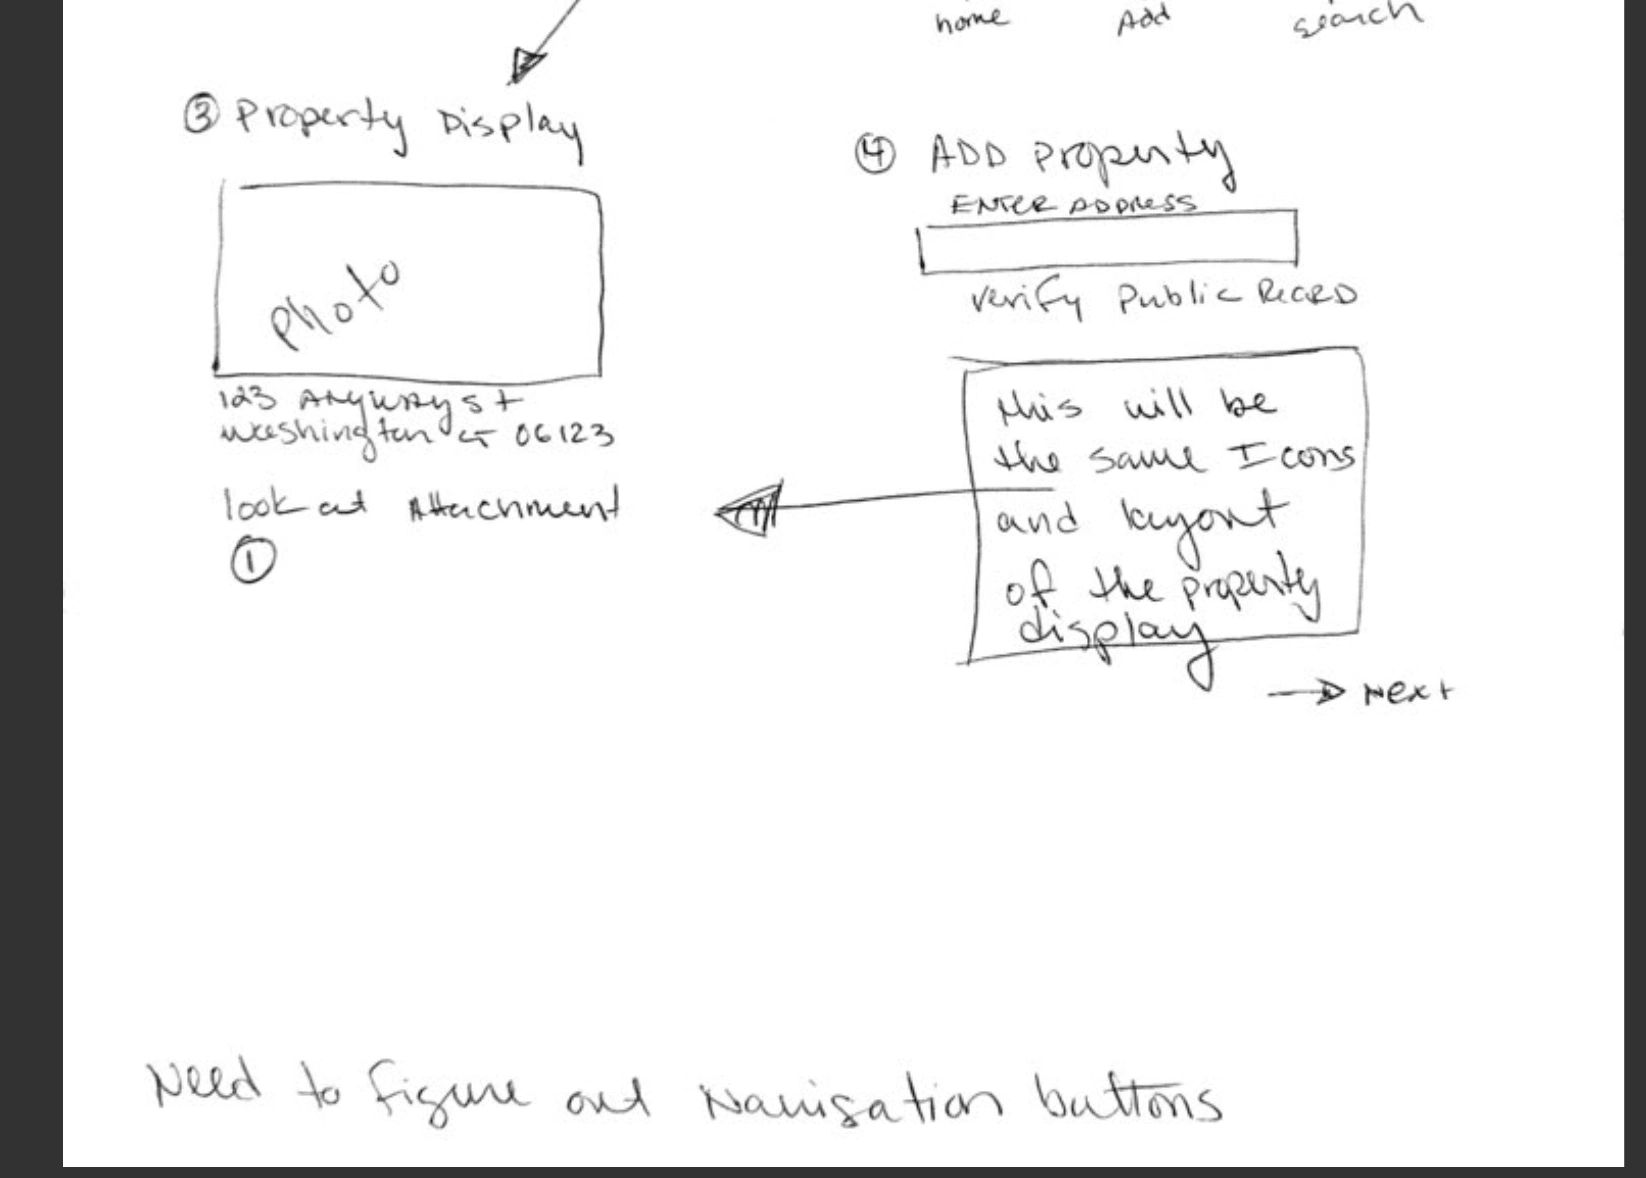 home Add search
③ Property Display
Photo
123 Anyway st
Washington CT 06123
look at Attachment
①
④ ADD property
ENTER ADDRESS
Verify Public Record
this will be
the same Icons
and layout
of the property
display
Next
Need to figure out Navigation buttons